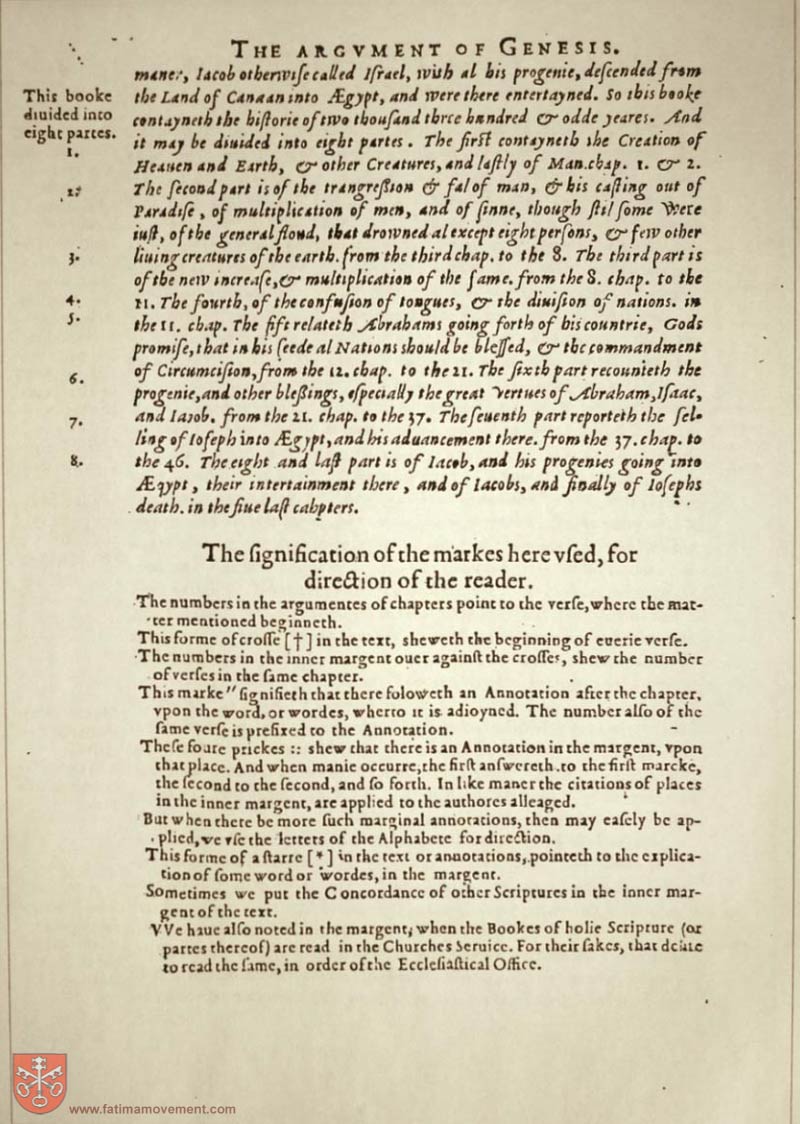 THE ARGVMENT OF GENESIS.
maner, Iacob otherwiſe called Iſrael, with al his progenie, deſcended from
This booke
diuided into
eight partes.
the Land of Canaan into Ægypt, and were there entertayned. So this booke
contayneth the hiſtorie of two thouſand three hundred & odde yeares. And
it may be diuided into eight partes. The firſt contayneth the Creation of
1.
Heauen and Earth, & other Creatures, and laſtly of Man. chap. 1. & 2.
2.
The ſecond part is of the trangreſſion & fal of man, & his caſting out of
Paradiſe, of multiplication of men, and of ſinne, though ſtil ſome were
iuſt, of the general floud, that drowned al except eight perſons, & few other
3.
liuing creatures of the earth. from the third chap. to the 8. The third part is
of the new increaſe, & multiplication of the ſame. from the 8. chap. to the
4.
11. The fourth, of the confuſion of tongues, & the diuiſion of nations. in
5.
the 11. chap. The fift relateth Abrahams going forth of his countrie, Gods
promiſe, that in his ſeede al Nations should be bleſſed, & the commandment
6.
of Circumciſion, from the 12. chap. to the 21. The ſixth part recounteth the
progenie, and other bleſſings, eſpecially the great vertues of Abraham, Iſaac,
7.
and Iacob. from the 21. chap. to the 37. The ſeuenth part reporteth the ſel-
ling of Ioſeph into Ægypt, and his aduancement there. from the 37. chap. to
8.
the 46. The eight and laſt part is of Iacob, and his progenies going into
Ægypt, their intertainment there, and of Iacobs, and finally of Ioſephs
death. in the fiue laſt cahpters.
The ſignification of the markes here vſed, for
direction of the reader.
The numbers in the argumentes of chapters point to the verſe, where the mat-
ter mentioned beginneth.
This forme of croſſe [†] in the text, sheweth the beginning of euerie verſe.
The numbers in the inner margent ouer againſt the croſſes, shew the number
of verſes in the ſame chapter.
This marke " ſignifieth that there foloweth an Annotation after the chapter,
vpon the word, or wordes, wherto it is adioyned. The number alſo of the
ſame verſe is prefixed to the Annotation.
Theſe foure prickes :: shew that there is an Annotation in the margent, vpon
that place. And when manie occurre, the firſt anſwereth to the firſt marcke,
the ſecond to the ſecond, and ſo forth. In like maner the citations of places
in the inner margent, are applied to the authores alleaged.
But when there be more ſuch marginal annotations, then may eaſely be ap-
plied, we vſe the letters of the Alphabete for direction.
This forme of a ſtarre [*] in the text or annotations, pointeth to the explica-
tion of ſome word or wordes, in the margent.
Sometimes we put the Concordance of other Scriptures in the inner mar-
gent of the text.
VVe haue alſo noted in the margent, when the Bookes of holie Scripture (or
partes thereof) are read in the Churches Seruice. For their ſakes, that deſire
to read the ſame, in order of the Eccleſiaſtical Office.
www.fatimamovement.com